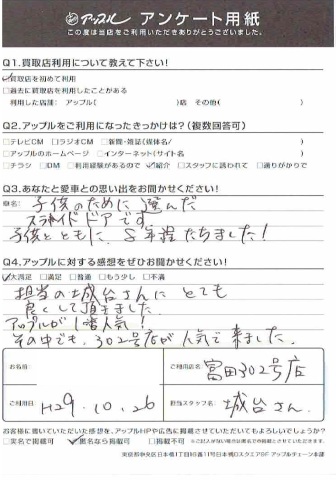 アップル アンケート用紙
この度は当店をご利用いただきありがとうございました。
Q1.買取店利用について教えて下さい!
☑買取店を初めて利用
□過去に買取店を利用したことがある
利用した店舗: アップル( )店 その他( )
Q2.アップルをご利用になったきっかけは?(複数回答可)
□テレビCM □ラジオCM □新聞・雑誌(媒体名/ )
□アップルのホームページ □インターネット(サイト名 )
□チラシ □DM □利用経験があるので ☑紹介 □スタッフに誘われて □通りがかりで
Q3.あなたと愛車との思い出をお聞かせください!
車名: 子供のために選んだ
スライドドアです。
子供とともに、8年程たちました!
Q4.アップルに対する感想をぜひお聞かせください!
☑大満足 □満足 □普通 □もう少し □不満
担当の城台さんに とても
良くして頂きました。
アップルが1番人気!
その中でも、302号店が人気で来ました。
お名前
ご利用店名: 富田302号店
ご利用日 H29.10.26
担当スタッフ名: 城台さん
お客様に書いていただいた感想を、アップルHPや広告に掲載させていただいてもよろしいでしょうか?
□実名で掲載可 ☑匿名なら掲載可 □掲載不可
東京都中央区日本橋1丁目16番11号日本橋Dスクエア9F アップルチェーン本部